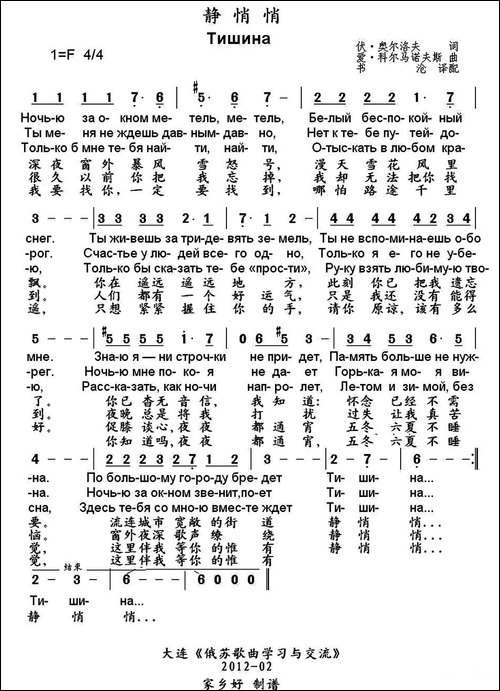 静 悄 悄
Тишина
1=F 4/4
伏·奥尔洛夫 词
爱·科尔马诺夫斯 曲
书 沧 译配
1 1 1 1 1 7· 6 | #5· 6 7 - | 2 2 2 2 1· 7 |
Ночь-ю за о-кном ме-тель, ме-тель, Бе-лый бес-по-кой-ный
Ты ме-ня не ждешь дав-ным-дав-но, Нет к те-бе пу-тей-до-
Толь-ко б мне те-бя най-ти, най-ти, О-тыс-кать в лю-бом кра-
深 夜 窗 外 暴 风 雪 怒 号, 漫 天 雪 花 风 里
很 久 以 前 你 把 我 忘 掉, 我 却 无 法 把 你 找
我 要 找 你, 一 定 要 找 到, 哪 怕 路 途 千 里
3 - - - | 3 3 3 3 2· 1 | 7· 1 2 - | 4 4 4 4 2 3 4 |
снег. Ты жи-вешь за три-де-вять зе-мель, Ты не вспо-ми-на-ешь о-бо
-рог. Счас-тье у лю-дей все-го од-но, Толь-ко я е-го не у-бе-
-ю, Толь-ко бы ска-зать те-бе «прос-ти», Ру-ку взять лю-би-му-ю тво-
飘。 你 在 遥 远 遥 远 地 方, 此 刻 你 已 把 我 遗 忘
到。 人 们 都 有 一 个 好 运 气, 只 是 我 还 没 有 能 得
遥, 只 想 紧 紧 握 住 你 的 手, 请 你 原 谅, 该 有 多 么
5 - - - | #5 5 5 5 5 1 | 7 06 #5 3 | 6 6 6 5 4 3 |
мне. Зна-ю я — ни строч-ки не при-дет, Па-мять боль-ше не нуж-
-рег. Ночь-ю мне по-ко-я не да-ет Горь-ка-я мо-я ви-
-ю, Рас-ска-зать, как но-чи нап-ро-лет, Ле-том и зи-мой, без
了。 你 已 杳 无 音 信, 我 知 道: 怀 念 已 经 不 需
到。 夜 晚 总 是 将 我 打 扰, 过 失 让 我 真 苦
好。 促 膝 谈 心, 夜 夜 都 通 宵, 五 冬、六 夏 不 睡
你 知 道 吗, 夜 夜 都 通 宵, 五 冬、六 夏 不 睡
4 - - - | 2 2 2 3 2 7 1 | 2 3 3 - | 2 - 7 - | 6 - - - :||
-на. По боль-шо-му го-ро-ду бре-дет Ти-ши-на...
-на. Ночь-ю за ок-ном зве-нит,по-ет Ти-ши-на...
сна, Здесь те-бя со мно-ю вмес-те ждет Ти-ши-на...
要。 流 连 城 市 宽 敞 的 街 道 静 悄 悄...
恼。 窗 外 夜 深 歌 声 缭 绕 静 悄 悄...
觉, 这 里 伴 我 等 你 的 惟 有 静 悄 悄...
觉, 这 里 伴 我 等 你 的 惟 有
结束
2 - 3 - | 6 - - - | 6 0 0 0 ||
Ти-ши-на...
静 悄 悄...
大连《俄苏歌曲学习与交流》
2012-02
家乡好 制谱